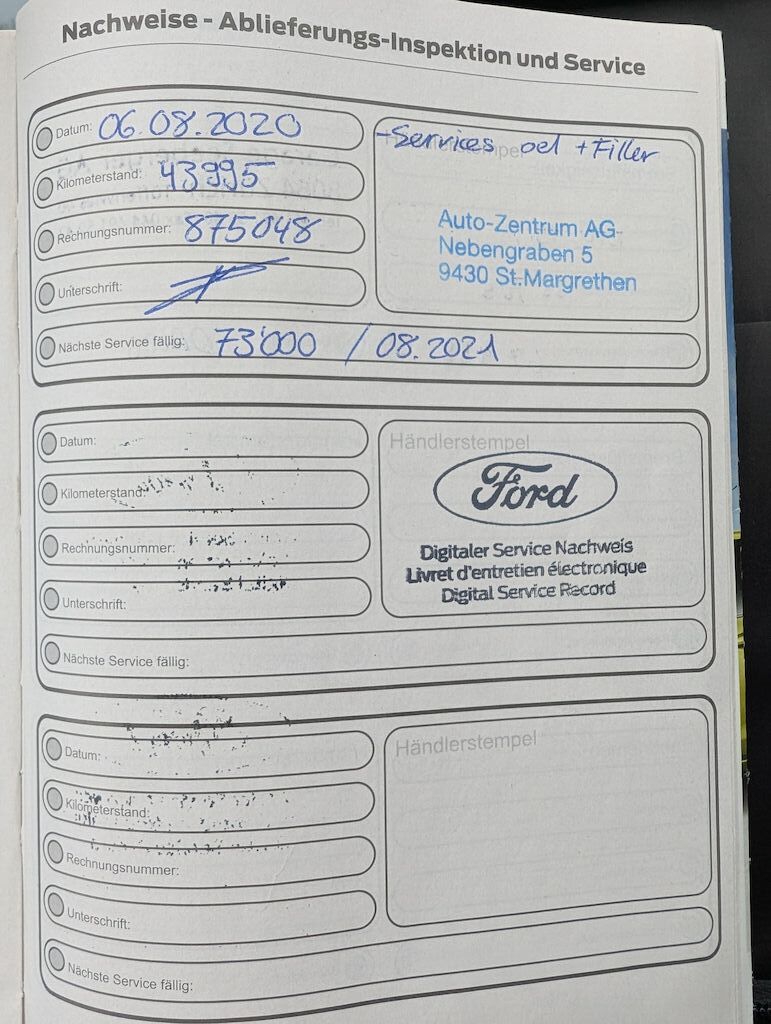 Nachweise - Ablieferungs-Inspektion und Service
Datum: 06.08.2020
Kilometerstand: 43995
Rechnungsnummer: 875048
Unterschrift:
Nächste Service fällig: 73'000 / 08.2021
Händlerstempel
-Services oel + Filler
Auto-Zentrum AG
Nebengraben 5
9430 St.Margrethen
Datum:
Kilometerstand:
Rechnungsnummer:
Unterschrift:
Nächste Service fällig:
Händlerstempel
Ford
Digitaler Service Nachweis
Livret d'entretien électronique
Digital Service Record
Datum:
Kilometerstand:
Rechnungsnummer:
Unterschrift:
Nächste Service fällig:
Händlerstempel